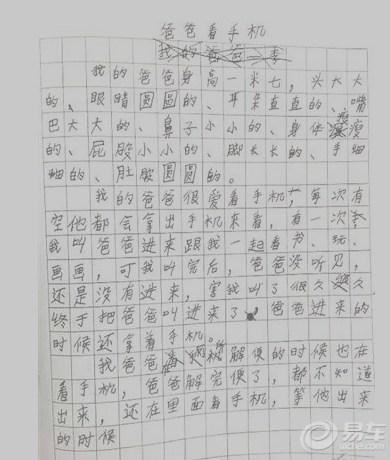 爸爸看手机
我的爸爸 李
我的爸爸身高一米七,头大大
的、眼睛圆圆的、耳朵直直的、嘴
巴大大的、鼻子小小的、身体瘦瘦
的、屁股小小的、脚长长的、手细
细的、肚皮圆圆的。
我的爸爸很爱看手机,每次有
空他都会拿出手机来看,有一次
我叫爸爸进来跟我一起看书、玩、
画画,可我叫完后,爸爸没听见,
还是没有进来,害我叫了很久
终于把爸爸叫进来了,爸爸进来的
时候还拿着手机。
我爸爸解便的时候也在
看手机,爸爸解完便了,都不知道
出来,还在里面看手机,等他出来
的时候
易车